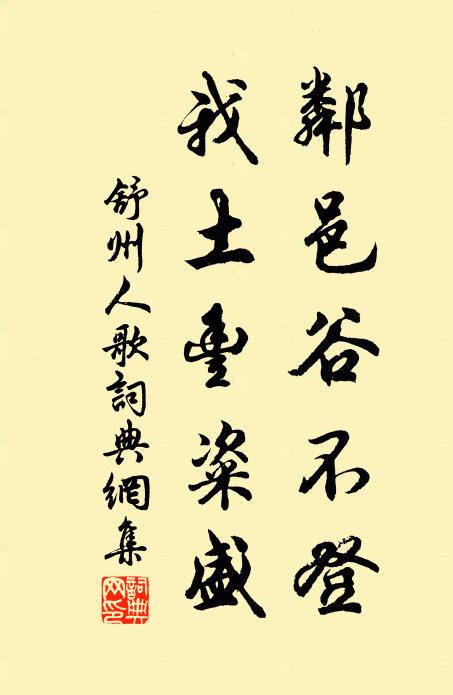 鄰邑谷不登
我土豐粢盛
舒州人歌詞典網集
詞典網印